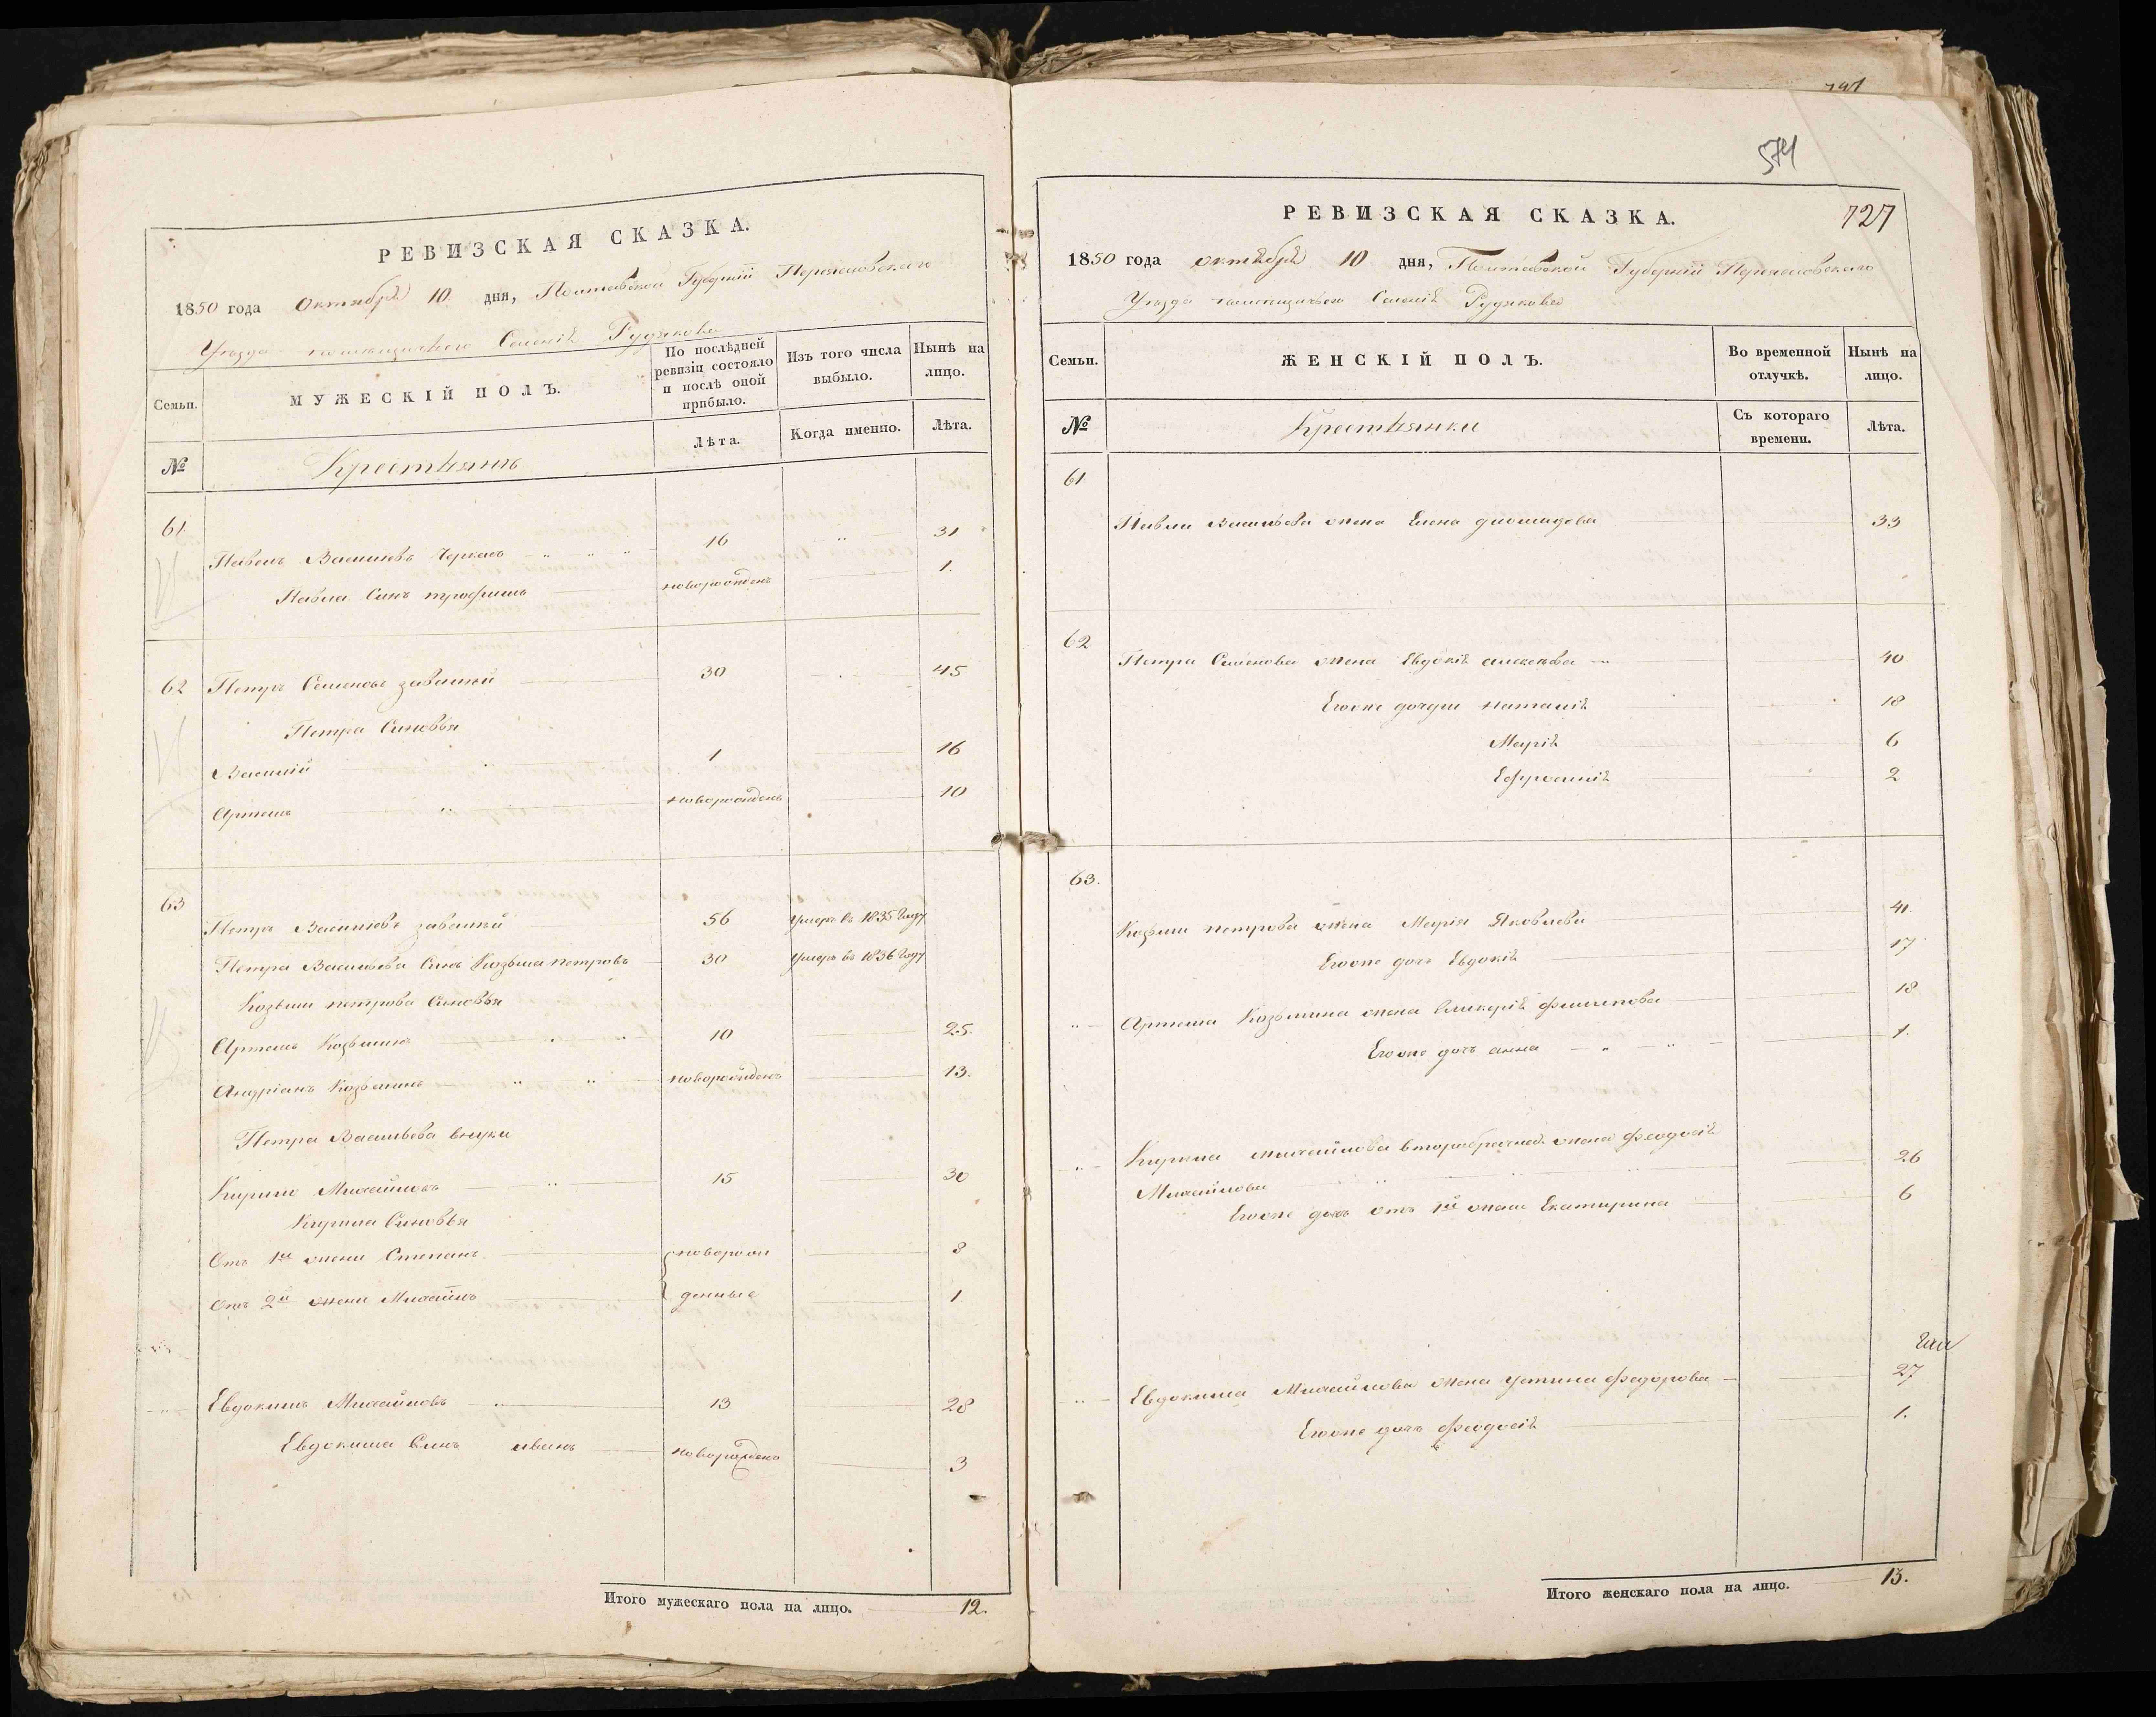 РЕВИЗСКАЯ СКАЗКА.
1850 года Октября 10 дня, Полтавской Губерніи Переясловскаго
Уезда помещичьего Селенія Рудякова
Семьи. МУЖЕСКІЙ ПОЛЪ. По послѣдней ревизіи состояло и послѣ оной прибыло. Изъ того числа выбыло. Нынѣ на лицо.
№ Крестьянъ Лѣта. Когда именно. Лѣта.
61.
Павелъ Васильевъ Черкасъ 16 31
Павла Синъ трофимъ новорожденъ 1.
62 Петръ Семеновъ 30 45
Петра Синовья
Василій 1 16
Артемъ новорожденъ 10
63
Петръ Васильевъ 56 умеръ въ 1835 году
Петра Васильева Синъ Козьма петровъ 30 умеръ въ 1836 году
Козьми петрова Синовья
Артемъ Козьминъ 10 25.
Андріанъ Козьминъ новорожденъ 13.
Петра Васильева внуки
Кирило Михайловъ 15 30
Кирила Синовья
Отъ 1й жени Степанъ новорож 8
Отъ 2й жени Михайлъ денные 1
Евдокимъ Михайловъ 13 28
Евдокима Синъ иванъ новорожденъ 3
Итого мужескаго пола на лицо. 12.
574
727
РЕВИЗСКАЯ СКАЗКА.
1850 года октября 10 дня, Полтавской Губерніи Переясловскаго
Уезда помещичьего Селенія Рудякова
Семьи. ЖЕНСКІЙ ПОЛЪ. Во временной отлучкѣ. Нынѣ на лицо.
№ Крестьянки Съ котораго времени. Лѣта.
61
Павла Васильева жена Елена диомидова 33
62
Петра Семенова жена Евдокія алексѣева 40
Егоже дочери наталія 18
Марія 6
Ефросинія 2
63.
Козьми петрова жена Марія Яковлева 41.
Егоже дочь Евдокія 17
Артема Козьмина жена Гликерія филипова 18
Егоже дочь анна 1.
Кирила михайлова второбрачная жена феодосія
Михайлова 26
Егоже дочь отъ 1й жени Екатирина 6
Евдокима Михайлова жена устина федорова 27
Егоже дочь феодосія 1.
Итого женскаго пола на лицо. 13.